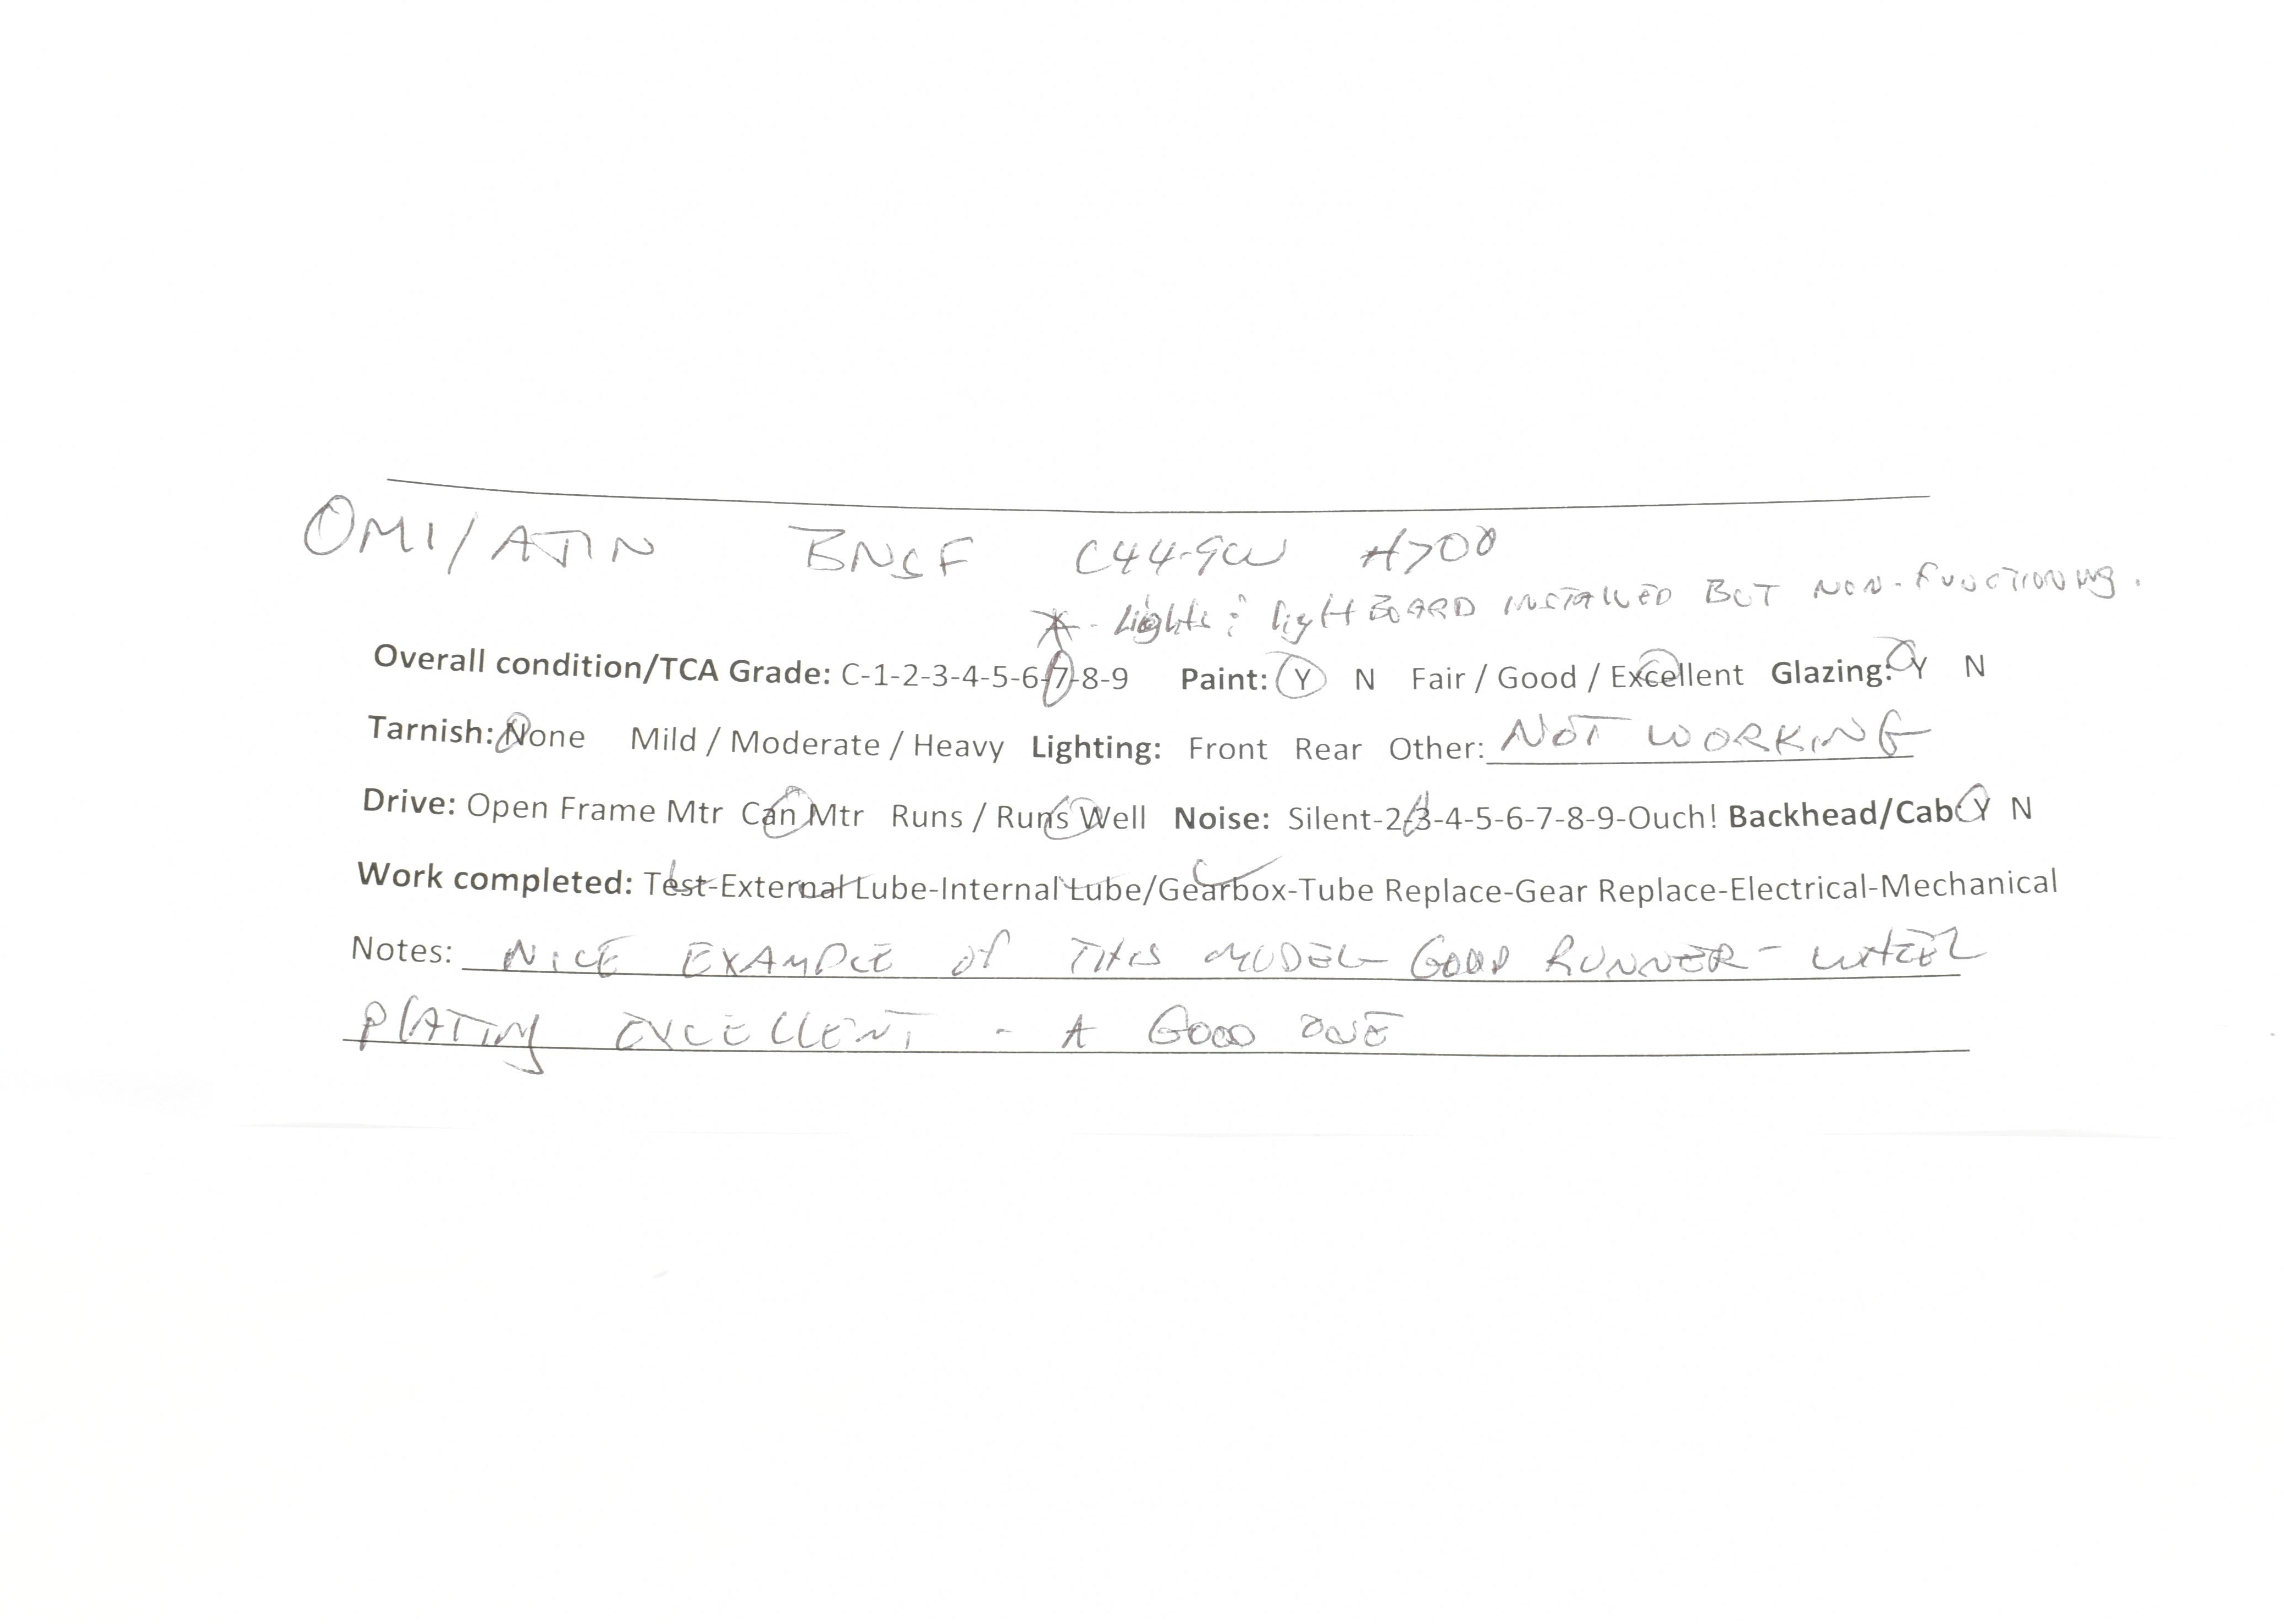 OMI/AJIN BNSF C44-9W #700
* - Lights: light BOARD INSTALLED BUT NON-FUNCTIONING.
Overall condition/TCA Grade: C-1-2-3-4-5-6-7-8-9 Paint: Y N Fair / Good / Excellent Glazing: Y N
Tarnish: None Mild / Moderate / Heavy Lighting: Front Rear Other: NOT WORKING
Drive: Open Frame Mtr Can Mtr Runs / Runs Well Noise: Silent-2-3-4-5-6-7-8-9-Ouch! Backhead/Cab: Y N
Work completed: Test-External Lube-Internal Lube/Gearbox-Tube Replace-Gear Replace-Electrical-Mechanical
Notes: NICE EXAMPLE of THIS MODEL- GOOD RUNNER - WHEEL
PLATING EXCELLENT - A GOOD ONE